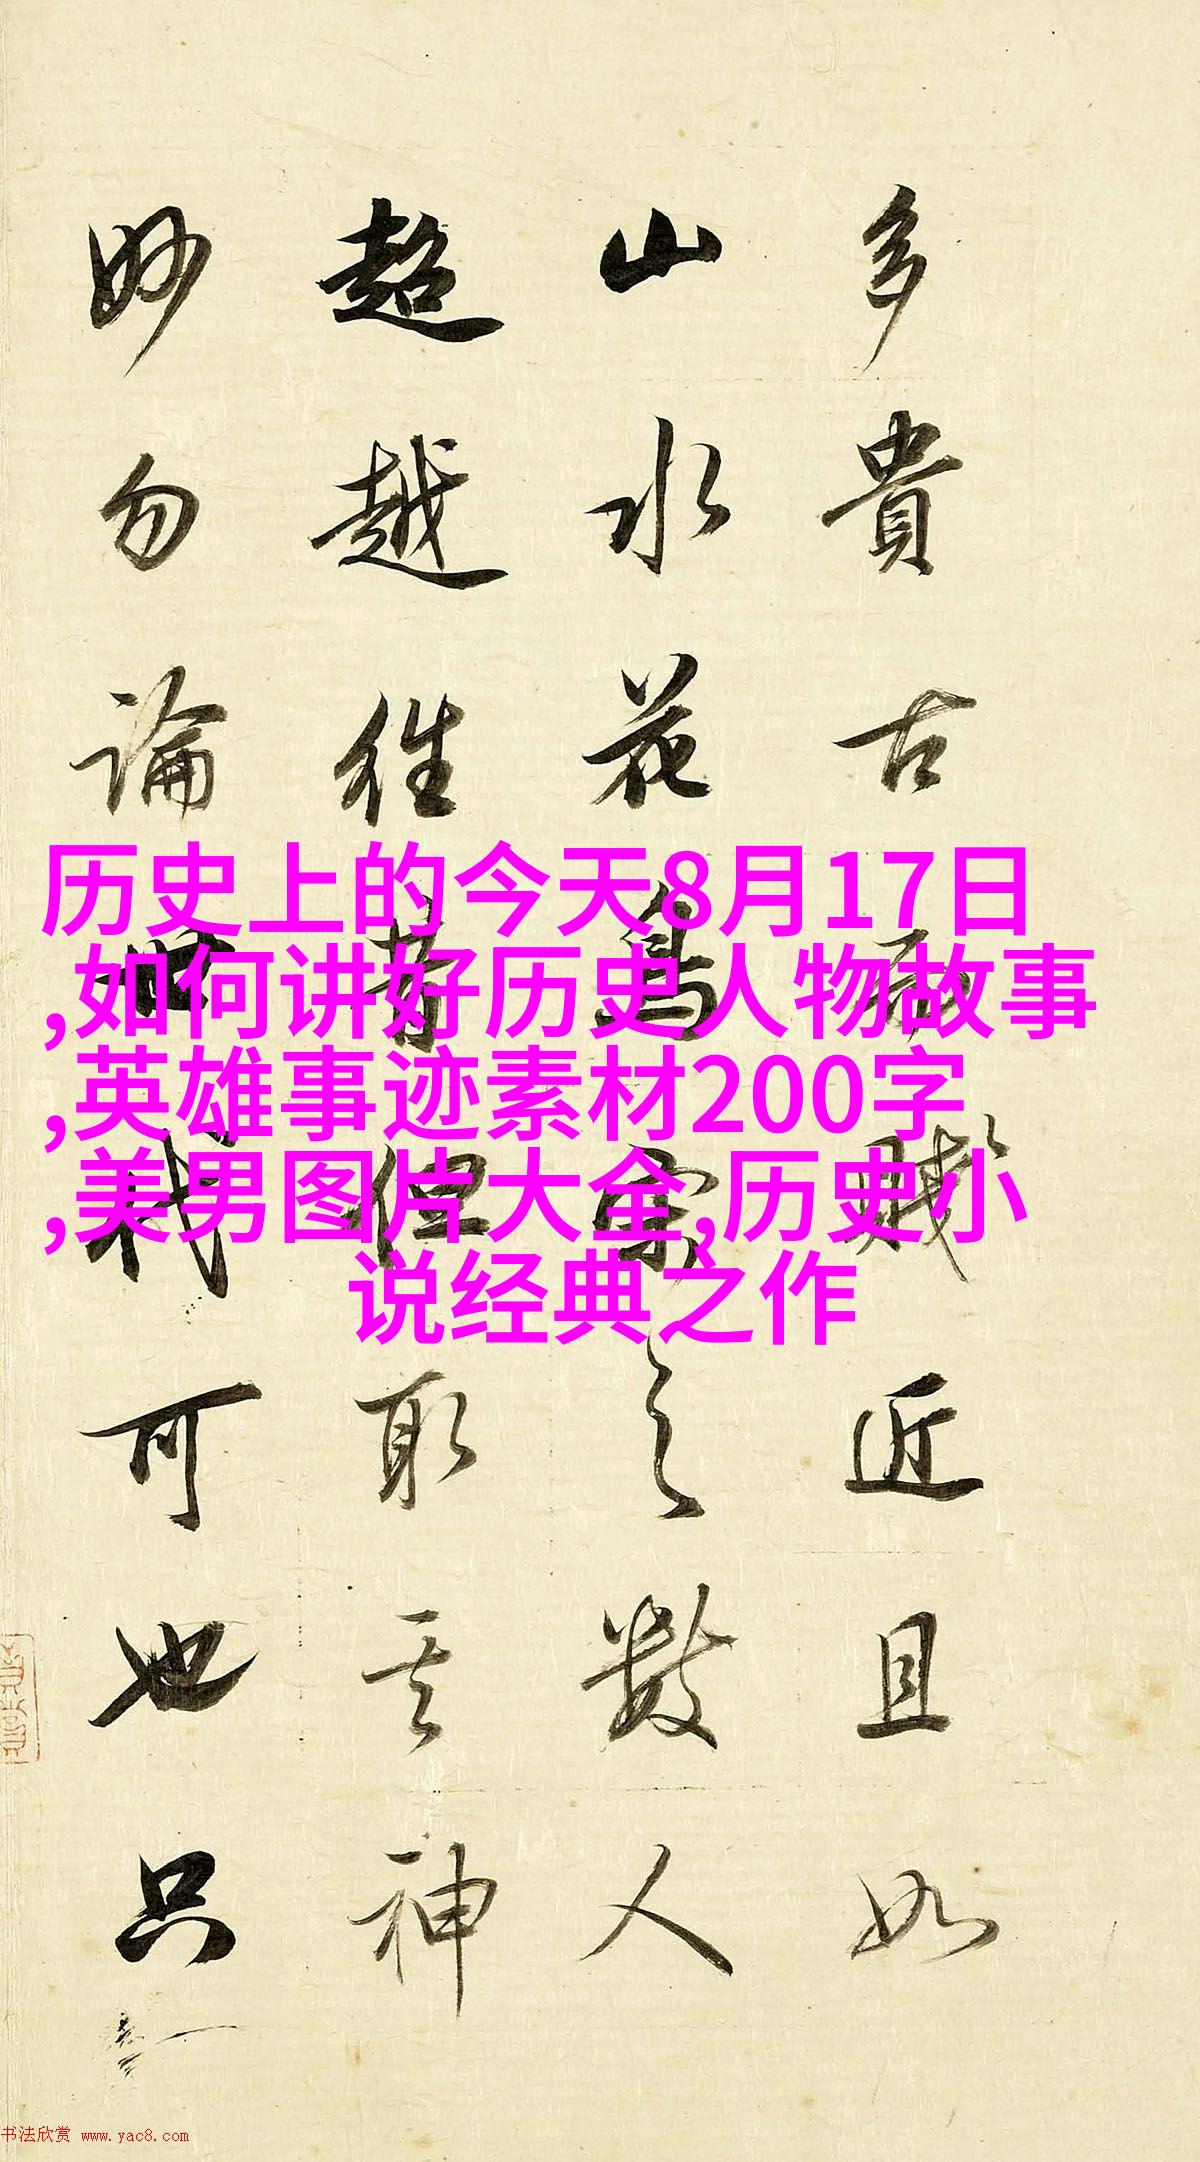 多貴古而賤近且如
山水花鳥宋之數人
超越徃昔但取其神
妙勿論世代可也只
历史上的今天8月17日
,如何讲好历史人物故事
,英雄事迹素材200字
,美男图片大全,历史小
说经典之作
书法欣赏 www.yac8.com